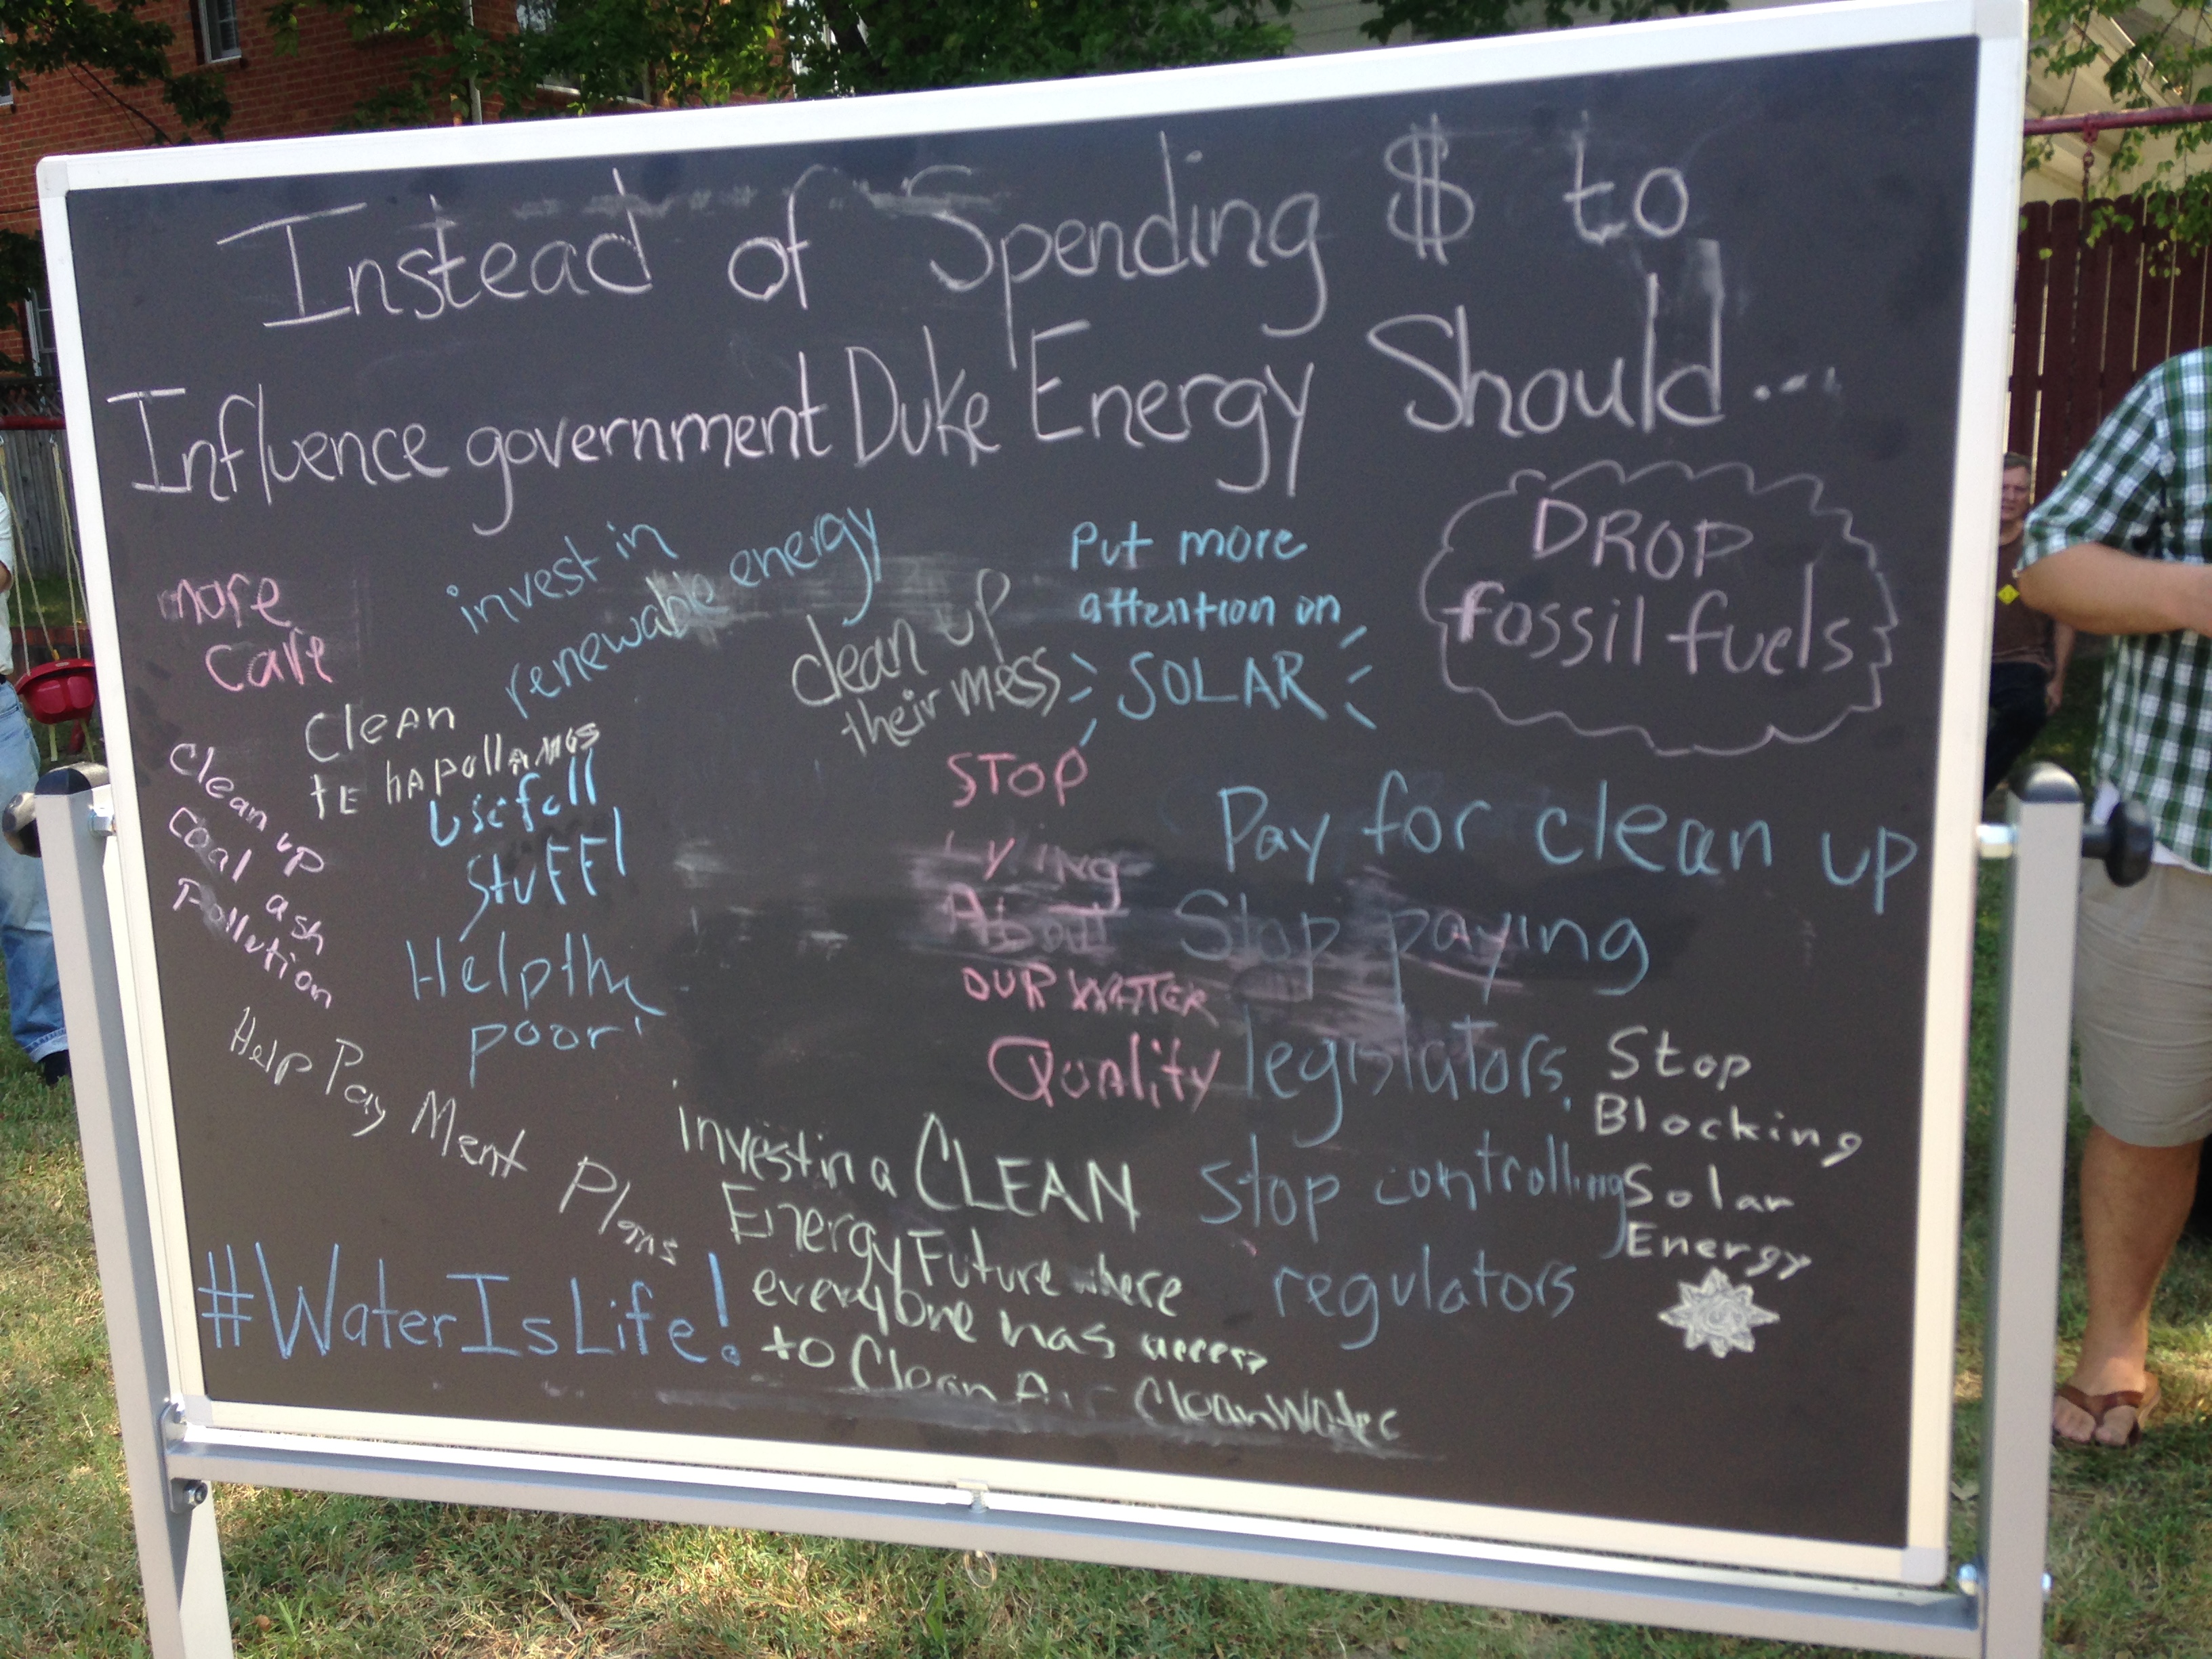 Instead of Spending $ to
Influence government Duke Energy Should...
more
care
invest in
renewable energy
clean up
their mess
Put more
attention on
SOLAR
DROP
fossil fuels
Clean
Clean up
coal ash
Pollution
usefull
stuff!
Help the
poor!
STOP
lying
About
OUR WATER
Quality
Pay for clean up
Stop paying
legislators.
Stop controlling
regulators
Stop
Blocking
Solar
Energy
Help Pay Ment Plans
invest in a CLEAN
Energy Future where
everyone has access
to Clean Air Clean Water
#WaterIsLife!